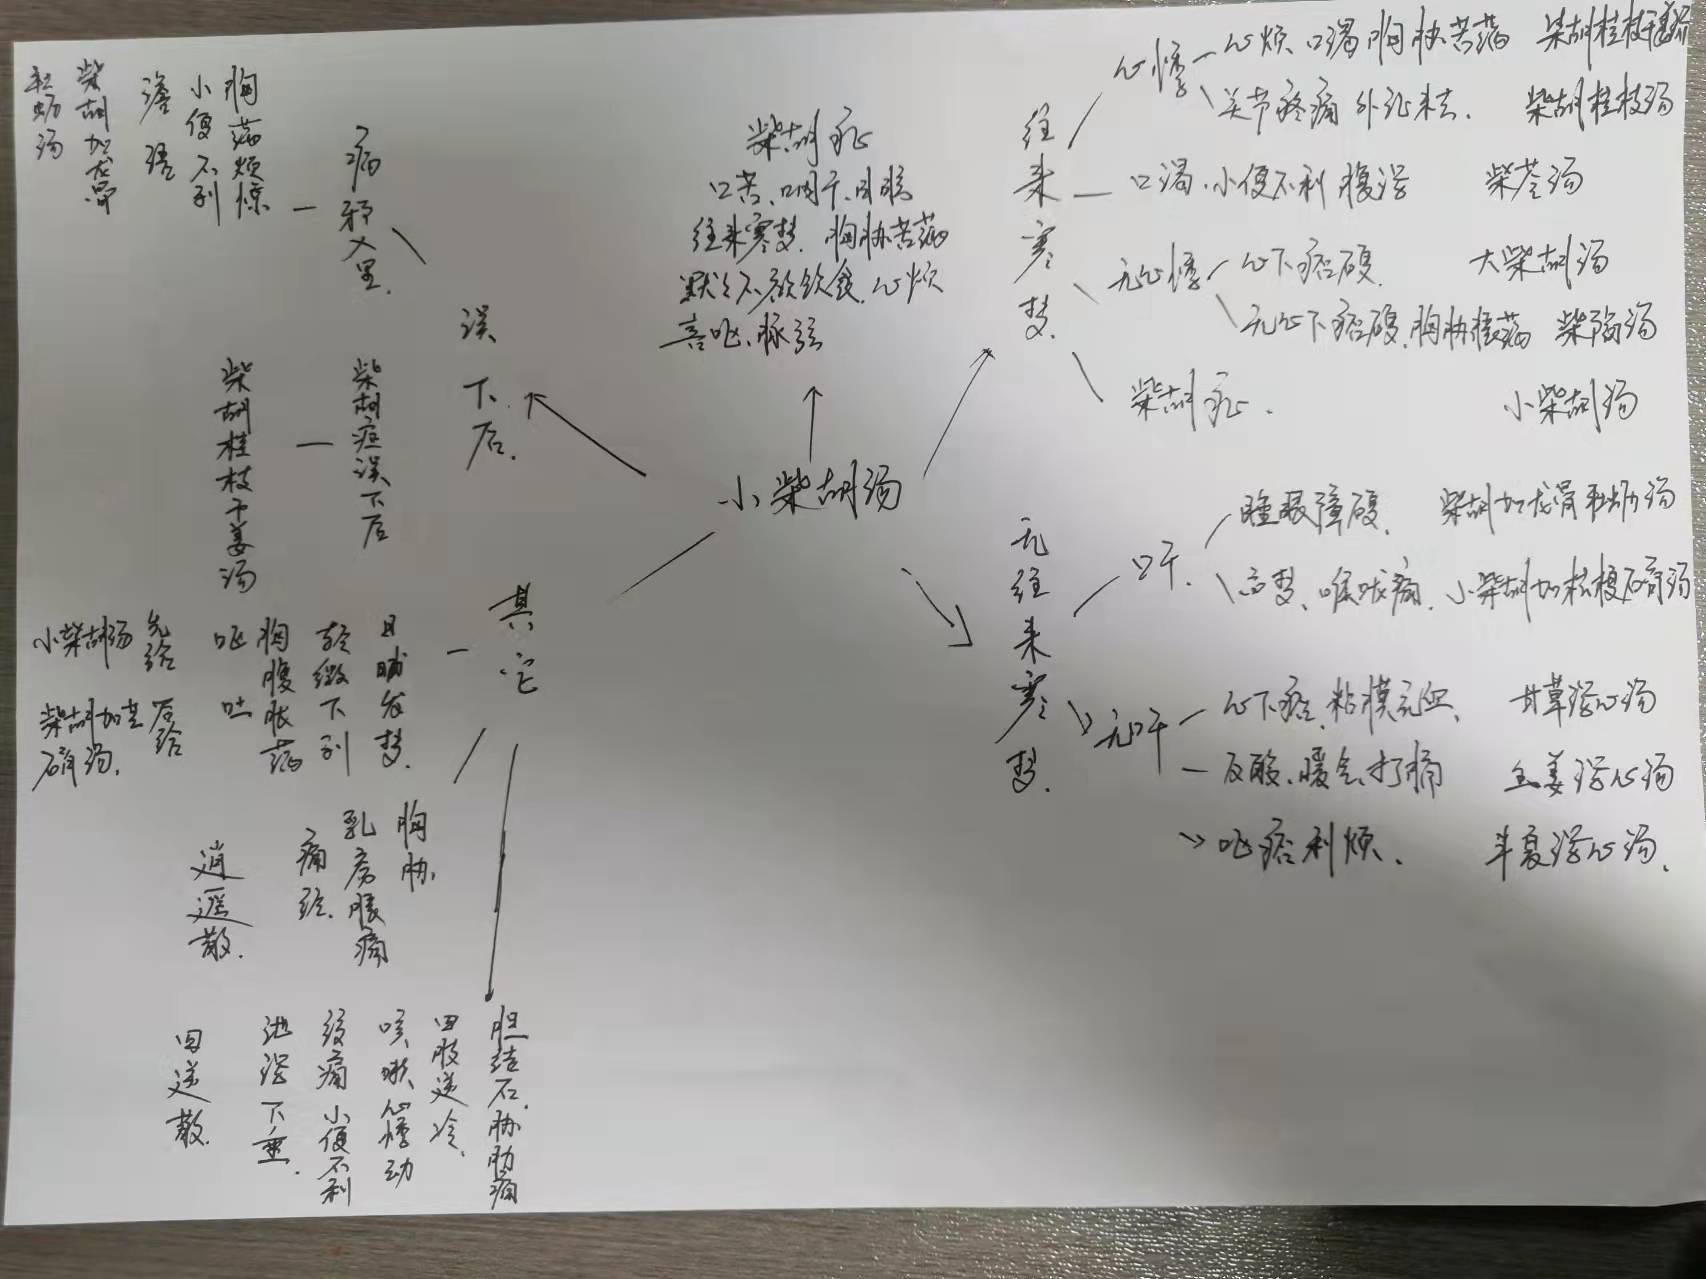 柴胡症
口苦、咽干、目眩
往来寒热、胸胁苦满
默々不欲饮食、心烦
喜呕、脉弦
小柴胡汤
往来寒热
心悸
心烦 口渴 胸胁苦满 柴胡桂枝干姜汤
关节疼痛 外证未去 柴胡桂枝汤
口渴、小便不利 腹泻 柴苓汤
无心悸
心下痞硬 大柴胡汤
无心下痞硬、胸胁 满 柴陷汤
柴胡症 小柴胡汤
无往来寒热
口干
睡眠障碍 柴胡加龙骨牡蛎汤
高热、喉咙痛 小柴胡加桔梗石膏汤
无口干
心下痞、粘膜充血 甘草泻心汤
反酸、嗳气、打嗝 生姜泻心汤
呕痞利烦 半夏泻心汤
误下后
病邪入里
胸满烦惊
小便不利
谵语
柴胡加龙骨
牡蛎汤
柴胡症误下后
柴胡桂枝干姜汤
其它
日晡发热
轻微下利
胸腹胀满
呕吐
先给
小柴胡汤
后给
柴胡加芒
硝汤
胸胁
乳房胀痛
痛经
逍遥散
胆结石、胁肋痛
四肢逆冷
咳嗽、心悸动
腹痛 小便不利
泄泻下重
四逆散